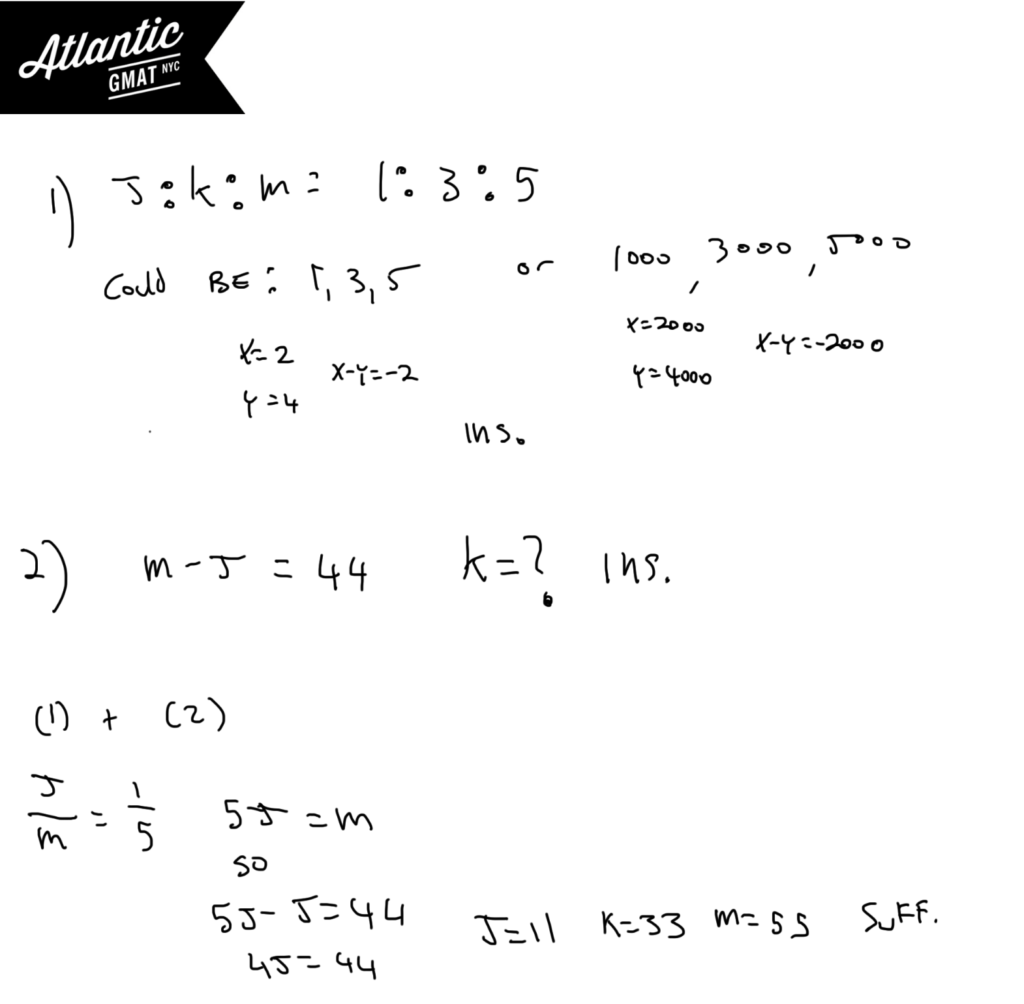 Atlantic
GMAT NYC
1) J:k:m = 1:3:5
Could BE: 1, 3, 5 or 1000, 3000, 5000
X=2 X-Y=-2 X=2000 X-Y=-2000
Y=4 Y=4000
Ins.
2) m-J = 44 k=? Ins.
(1) + (2)
J/m = 1/5 5J = m
so
5J-J=44 J=11 K=33 m=55 SuFF.
4J=44